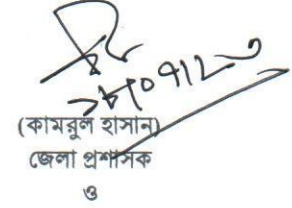 (কামরুল হাসান)
জেলা প্রশাসক
ও